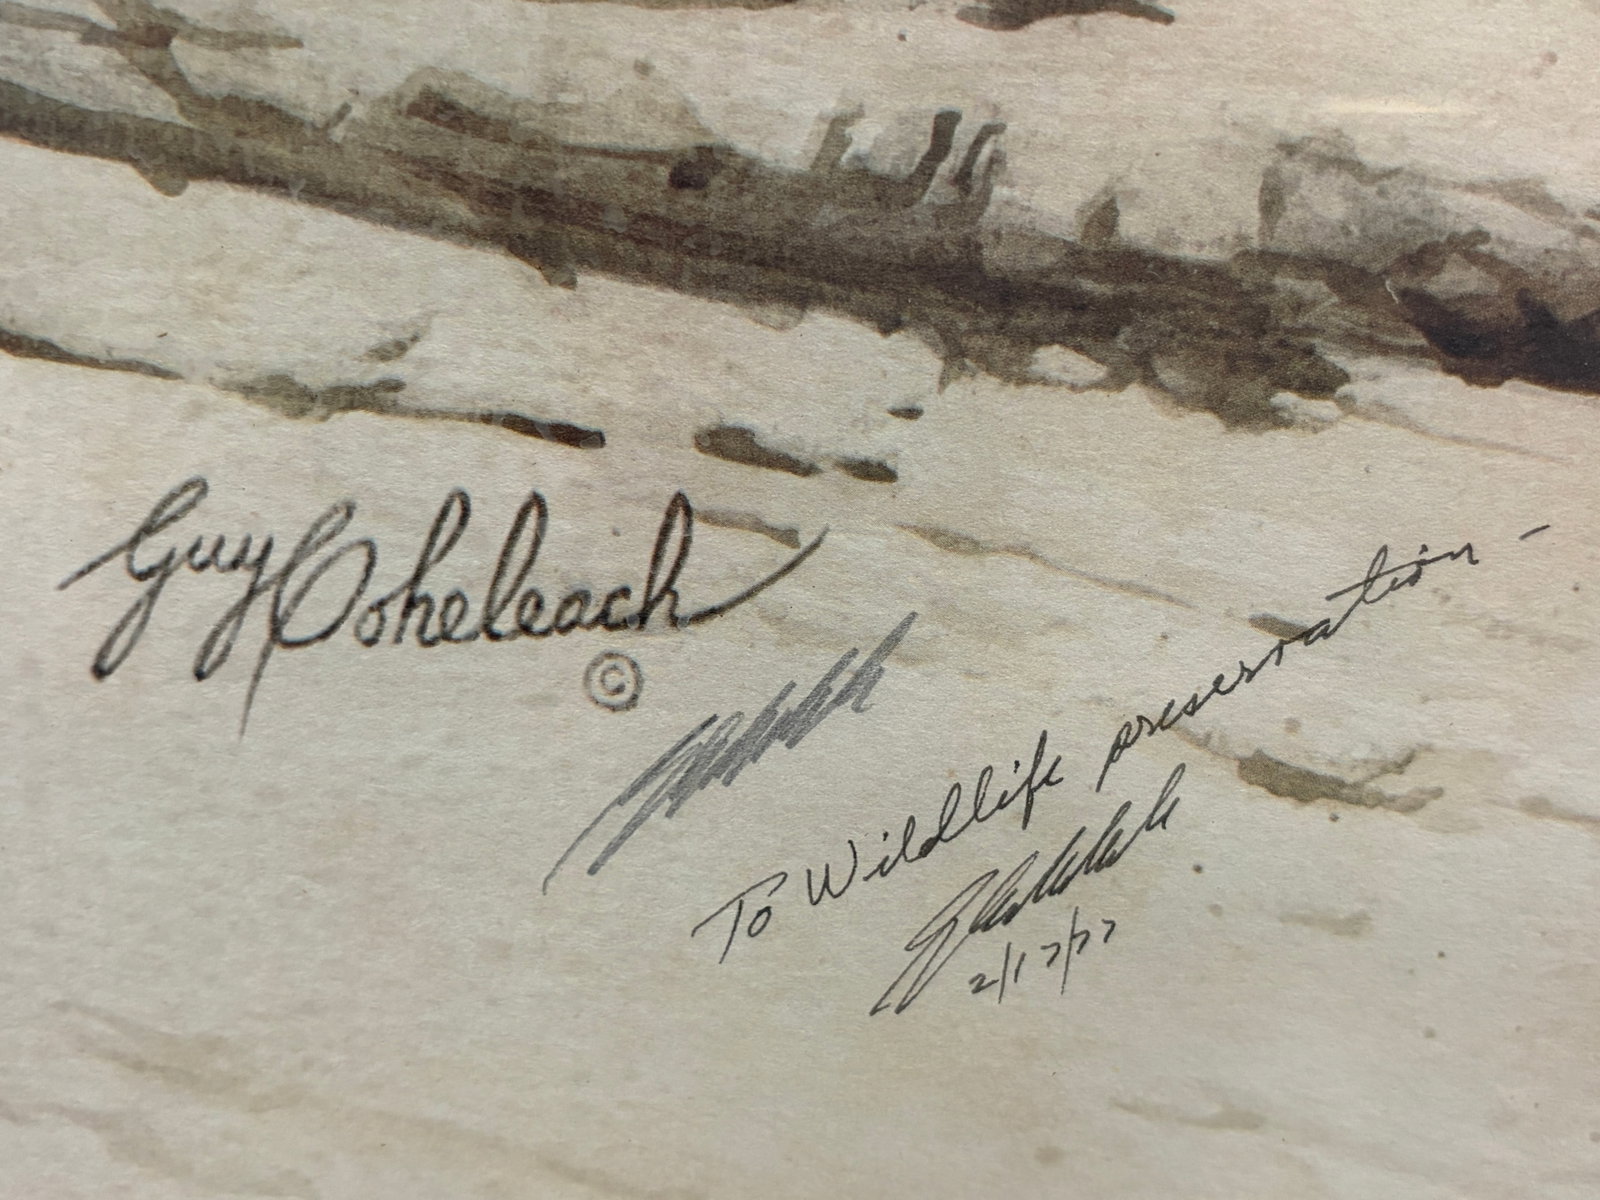 Guy Coheleach
©
To Wildlife preservation -
2/17/77